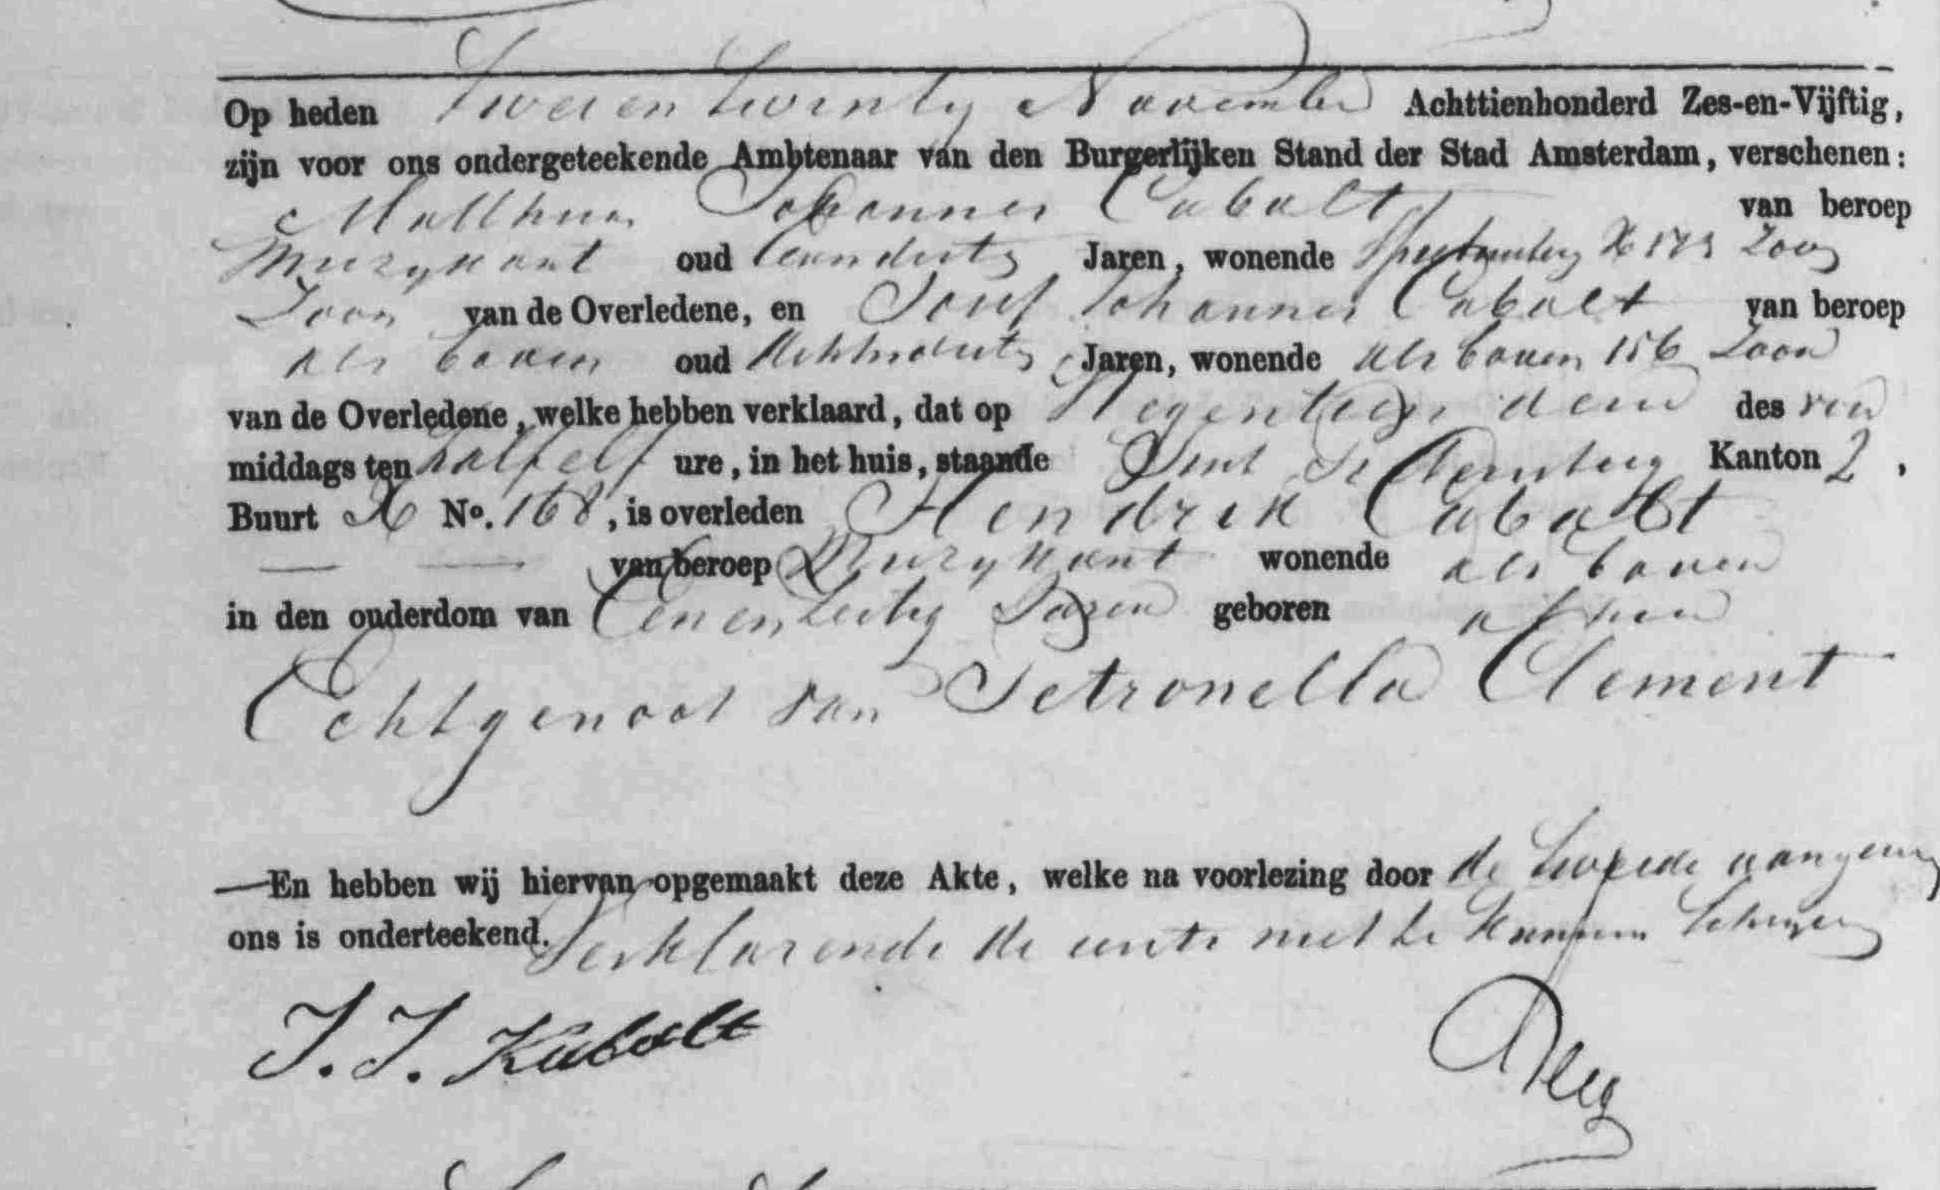 Op heden Twee en twintig November Achttienhonderd Zes-en-Vijftig,
zijn voor ons ondergeteekende Ambtenaar van den Burgerlijken Stand der Stad Amsterdam, verschenen:
Mattheus Johannes Cabalt van beroep
Muzykant oud Eenendertig Jaren, wonende X 173 Zoon
Zoon van de Overledene, en Josef Johannes Cabalt van beroep
als boven oud Achtendertig Jaren, wonende als boven 156 Zoon
van de Overledene, welke hebben verklaard, dat op Negentien dezer des voor
middags ten half elf ure, in het huis, staande Kanton 2,
Buurt X No. 168, is overleden Hendrik Cabalt
van beroep Muzykant wonende als boven
in den ouderdom van Eenenzestig Jaren geboren alhier
Echtgenoot van Petronella Clement
En hebben wij hiervan opgemaakt deze Akte, welke na voorlezing door de tweede aangever
ons is onderteekend. Verklarende de eerste niet te kunnen schryven
J. J. Kabalt